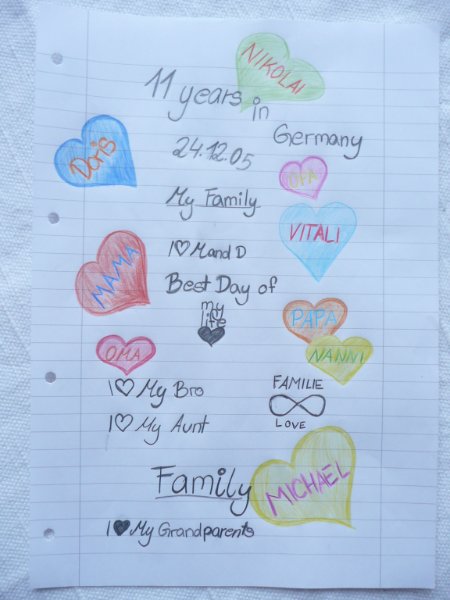 NIKOLAI
11 years in
Germany
Doris
24.12.05
OPA
My Family
VITALI
I ♡ M and D
MAMA
Best Day of
my
life
PAPA
OMA
NANNI
I ♡ My Bro
FAMILIE
I ♡ My Aunt
LOVE
Family
MICHAEL
I ♥ My Grandparents